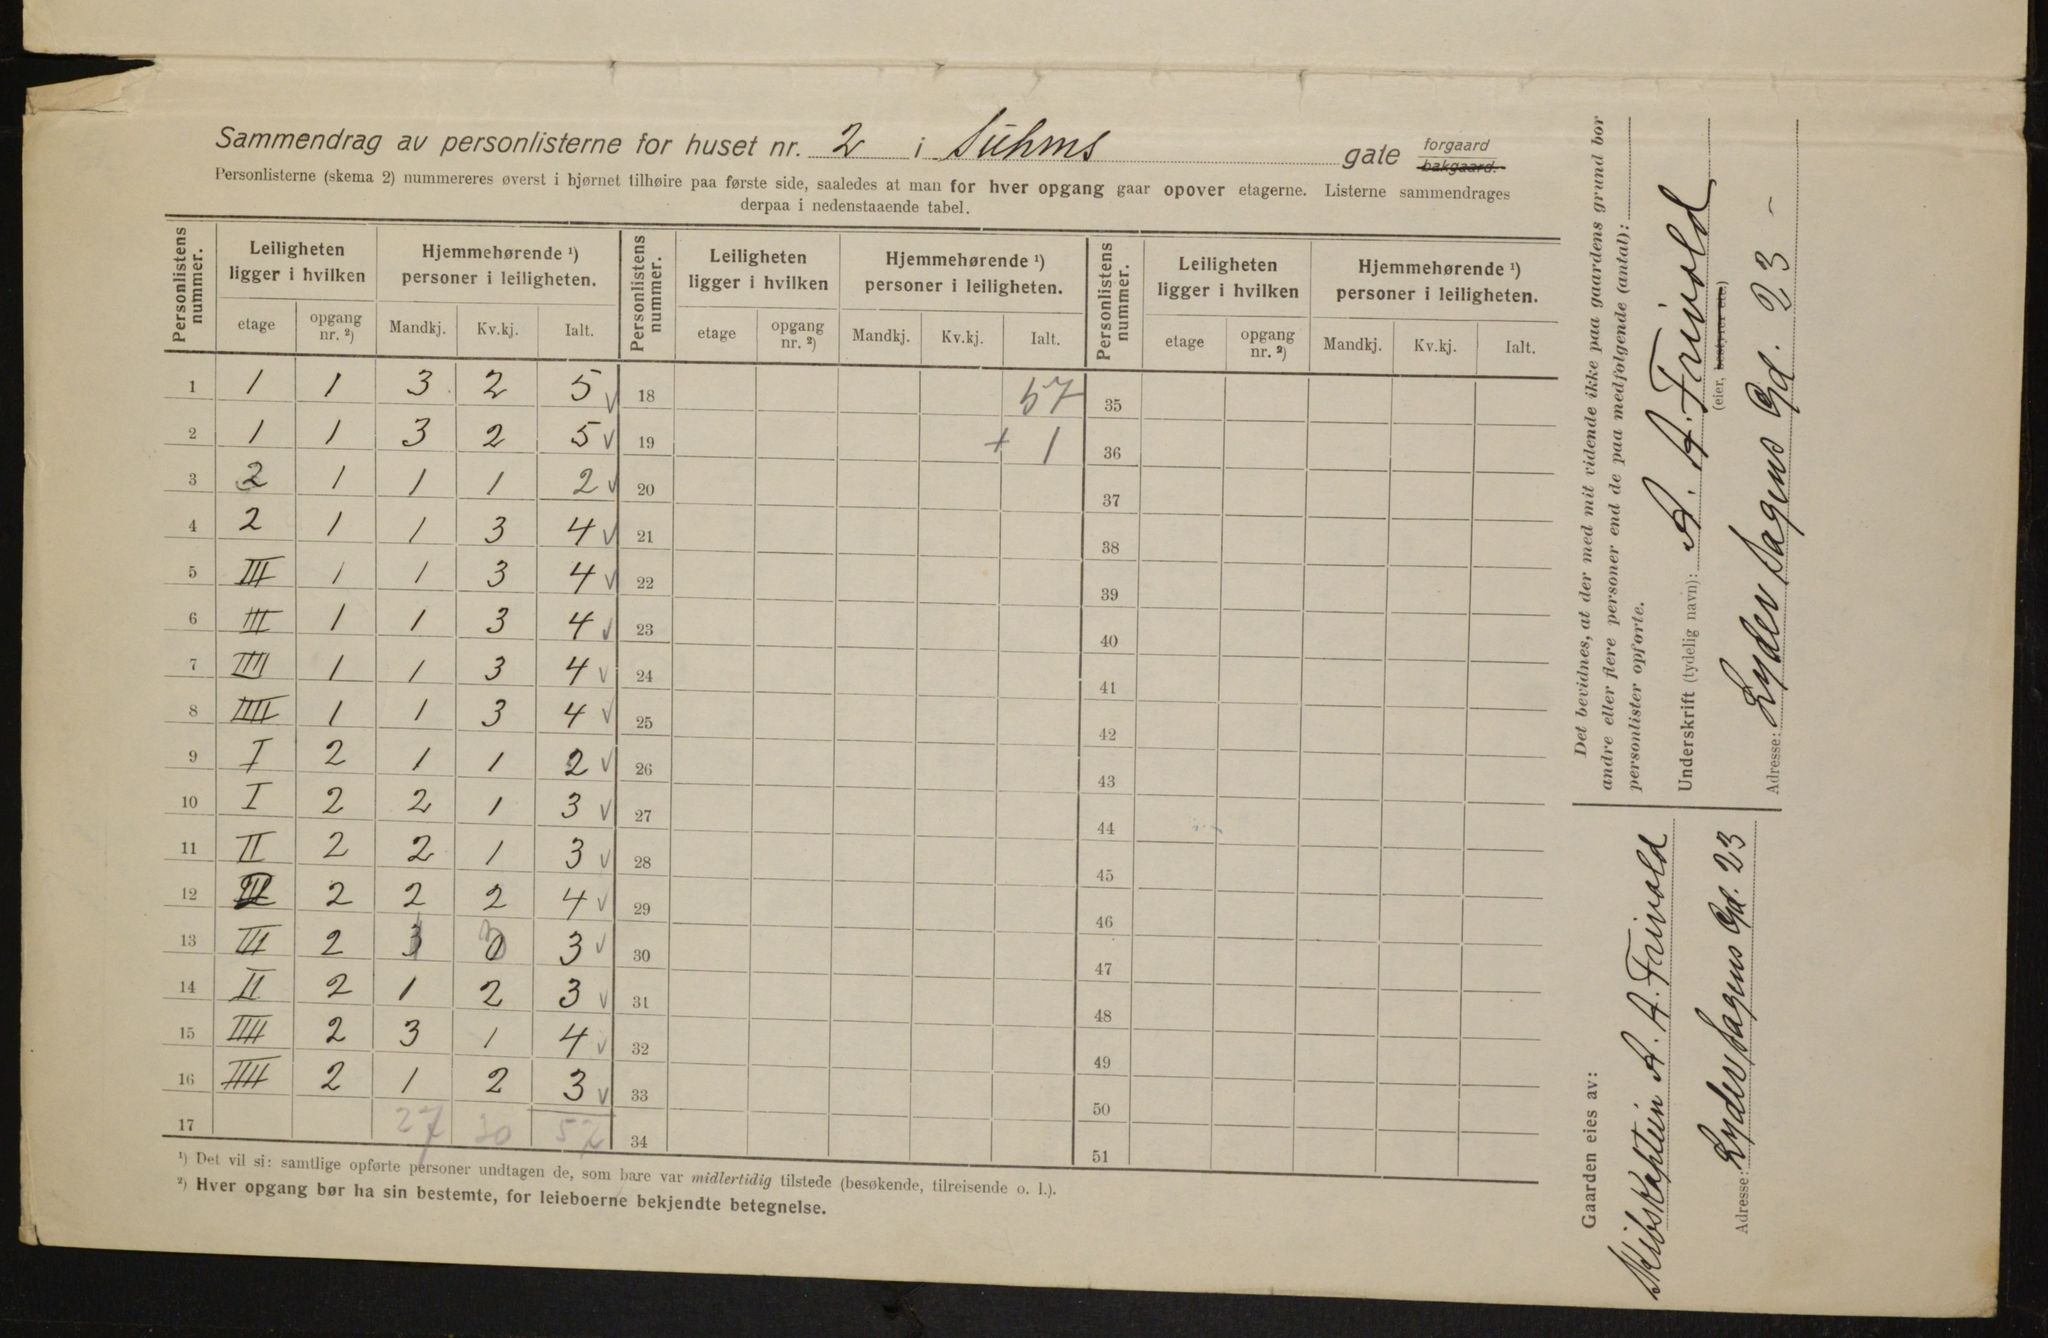 Sammendrag av personlisterne for huset nr. 2 i Suhms gate forgaard bakgaard.
Personlisterne (skema 2) nummereres øverst i hjørnet tilhøire paa første side, saaledes at man for hver opgang gaar opover etagerne. Listerne sammendrages
derpaa i nedenstaaende tabel.
Personlistens nummer. Leiligheten ligger i hvilken Hjemmehørende ¹) personer i leiligheten. Personlistens nummer. Leiligheten ligger i hvilken Hjemmehørende ¹) personer i leiligheten. Personlistens nummer. Leiligheten ligger i hvilken Hjemmehørende ¹) personer i leiligheten.
etage opgang nr. ²) Mandkj. Kv.kj. Ialt. etage opgang nr. ²) Mandkj. Kv.kj. Ialt. etage opgang nr. ²) Mandkj. Kv.kj. Ialt.
1 1 1 3 2 5 √ 18 57 35
2 1 1 3 2 5 √ 19 + 1 36
3 2 1 1 1 2 √ 20 37
4 2 1 1 3 4 √ 21 38
5 III 1 1 3 4 √ 22 39
6 III 1 1 3 4 √ 23 40
7 IIII 1 1 3 4 √ 24 41
8 IIII 1 1 3 4 √ 25 42
9 I 2 1 1 2 √ 26 43
10 I 2 2 1 3 √ 27 44
11 II 2 2 1 3 √ 28 45
12 2 2 2 4 √ 29 46
13 III 2 3 √ 30 47
14 II 2 1 2 3 √ 31 48
15 IIII 2 3 1 4 √ 32 49
16 IIII 2 1 2 3 √ 33 50
17 27 30 57 34 51
¹) Det vil si: samtlige opførte personer undtagen de, som bare var midlertidig tilstede (besøkende, tilreisende o. l.).
²) Hver opgang bør ha sin bestemte, for leieboerne bekjendte betegnelse.
Det bevidnes, at der med mit vidende ikke paa gaardens grund bor
andre eller flere personer end de paa medfolgende (antal):
personlister opforte.
Underskrift (tydelig navn): A. A. Frivold
(eier, bestyrer etc.)
Adresse: Lyder Sagens Gd. 23 -
Gaarden eies av:
Skibskaptein A. A. Frivold
Adresse: Lyder Sagens Gd. 23